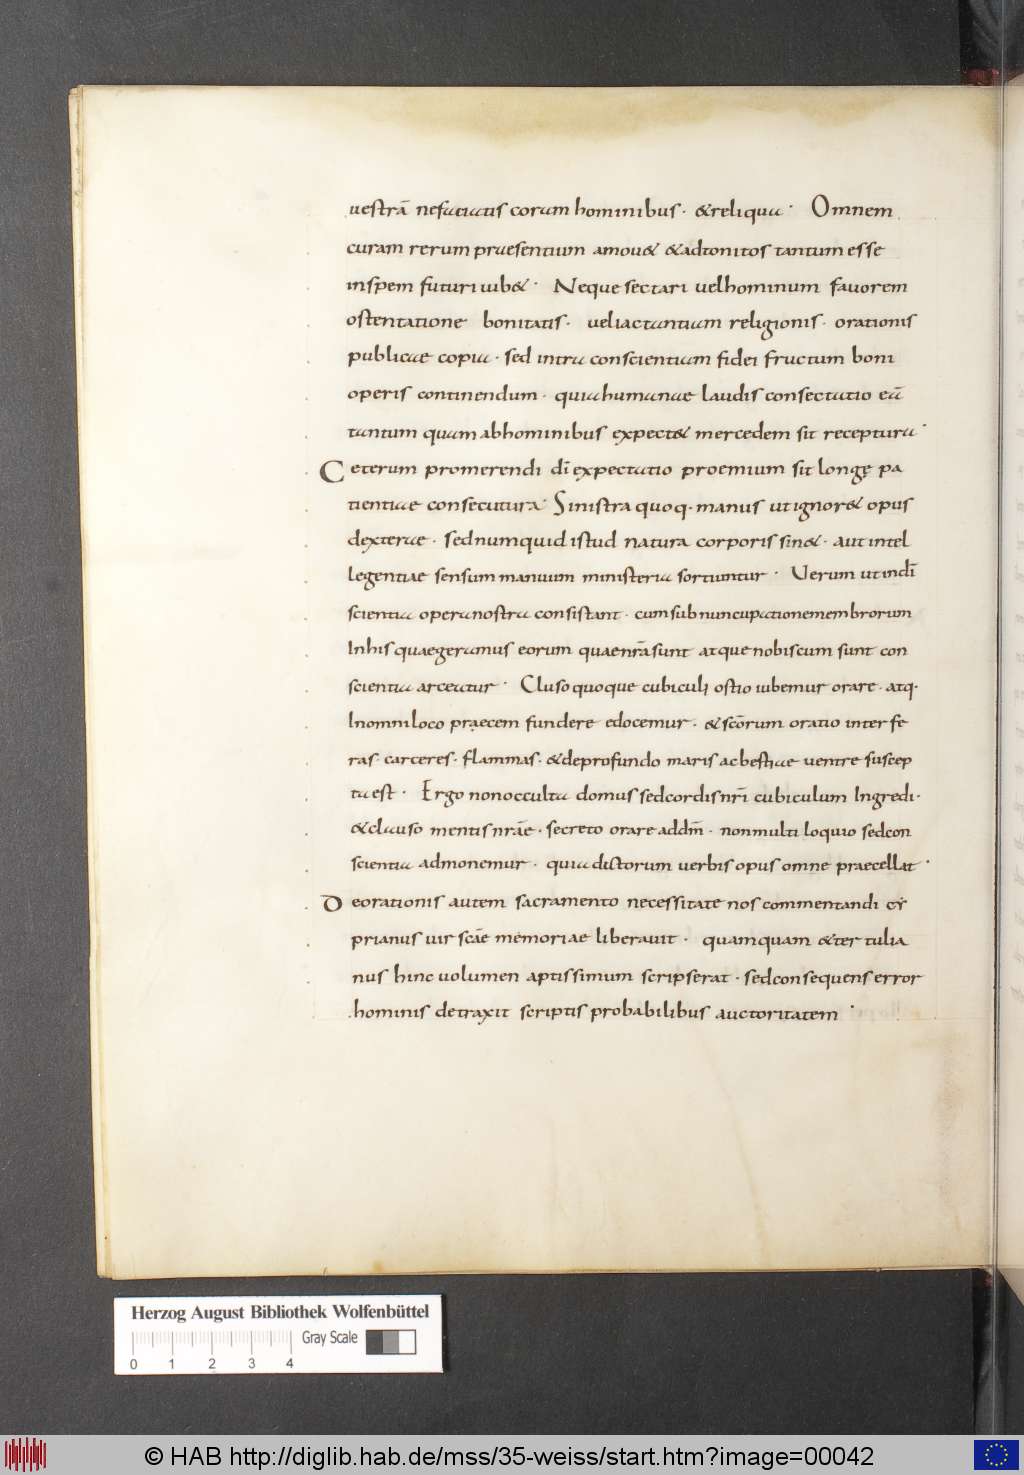 uestrā nefaciatis coram hominibus· &reliqua· Omnem
curam rerum praesentium amou& &adtonitos tantum esse
inspem futuri iub&· Neque sectari uelhominum fauorem
ostentatione bonitatis· ueliactantiam religionis· orationis
publicae copia· sed intra conscientiam fidei fructum boni
operis continendum· quiahumanae laudis consectatio eā
tantum quam abhominibus expect& mercedem sit receptura·
Ceterum promerendi dī expectatio proemium sit longę pa
tientiae consecutura· Sinistra quoq· manus ut ignor& opus
dexterae· sednumquid istud natura corporis sin&· aut intel
legentiae sensum manuum ministeria sortiuntur· Uerum ut indī
scientia opera nostra consistant· cum sub nuncupationemembrorum
Inhis quaegeramus eorum quae nr̄a sunt atque nobiscum sunt con
scientia arceatur· Cluso quoque cubiculi ostio iubemur orare· atq·
Inomni loco praecem fundere edocemur· & scōrum oratio inter fe
ras· carceres· flammas· &deprofundo maris ac bestiae uentre suscep
ta est· Ergo nonocculta domus sedcordis nr̄i cubiculum Ingredi·
&clauso mentis nrāe· secreto orare addm̄· non multi loquio sedcon
scientia admonemur· quia dictorum uerbis opus omne praecellat·
Deorationis autem sacramento necessitate nos commentandi cy
prianus uir scāe memoriae liberauit· quamquam &ter tulia
nus hinc uolumen aptissimum scripserat· sedconsequens error
hominis detraxit scriptis probabilibus auctoritatem·
Herzog August Bibliothek Wolfenbüttel
0 1 2 3 4 Gray Scale
© HAB http://diglib.hab.de/mss/35-weiss/start.htm?image=00042